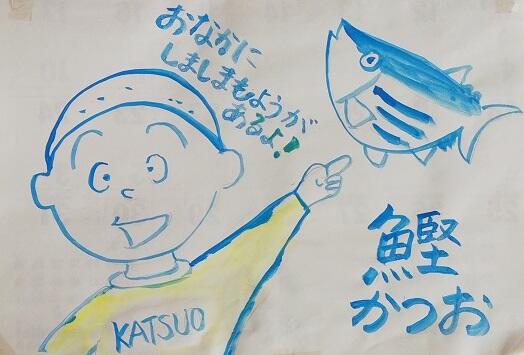 おなかに
しましまもようが
あるよ!
KATSUO
鰹
かつお